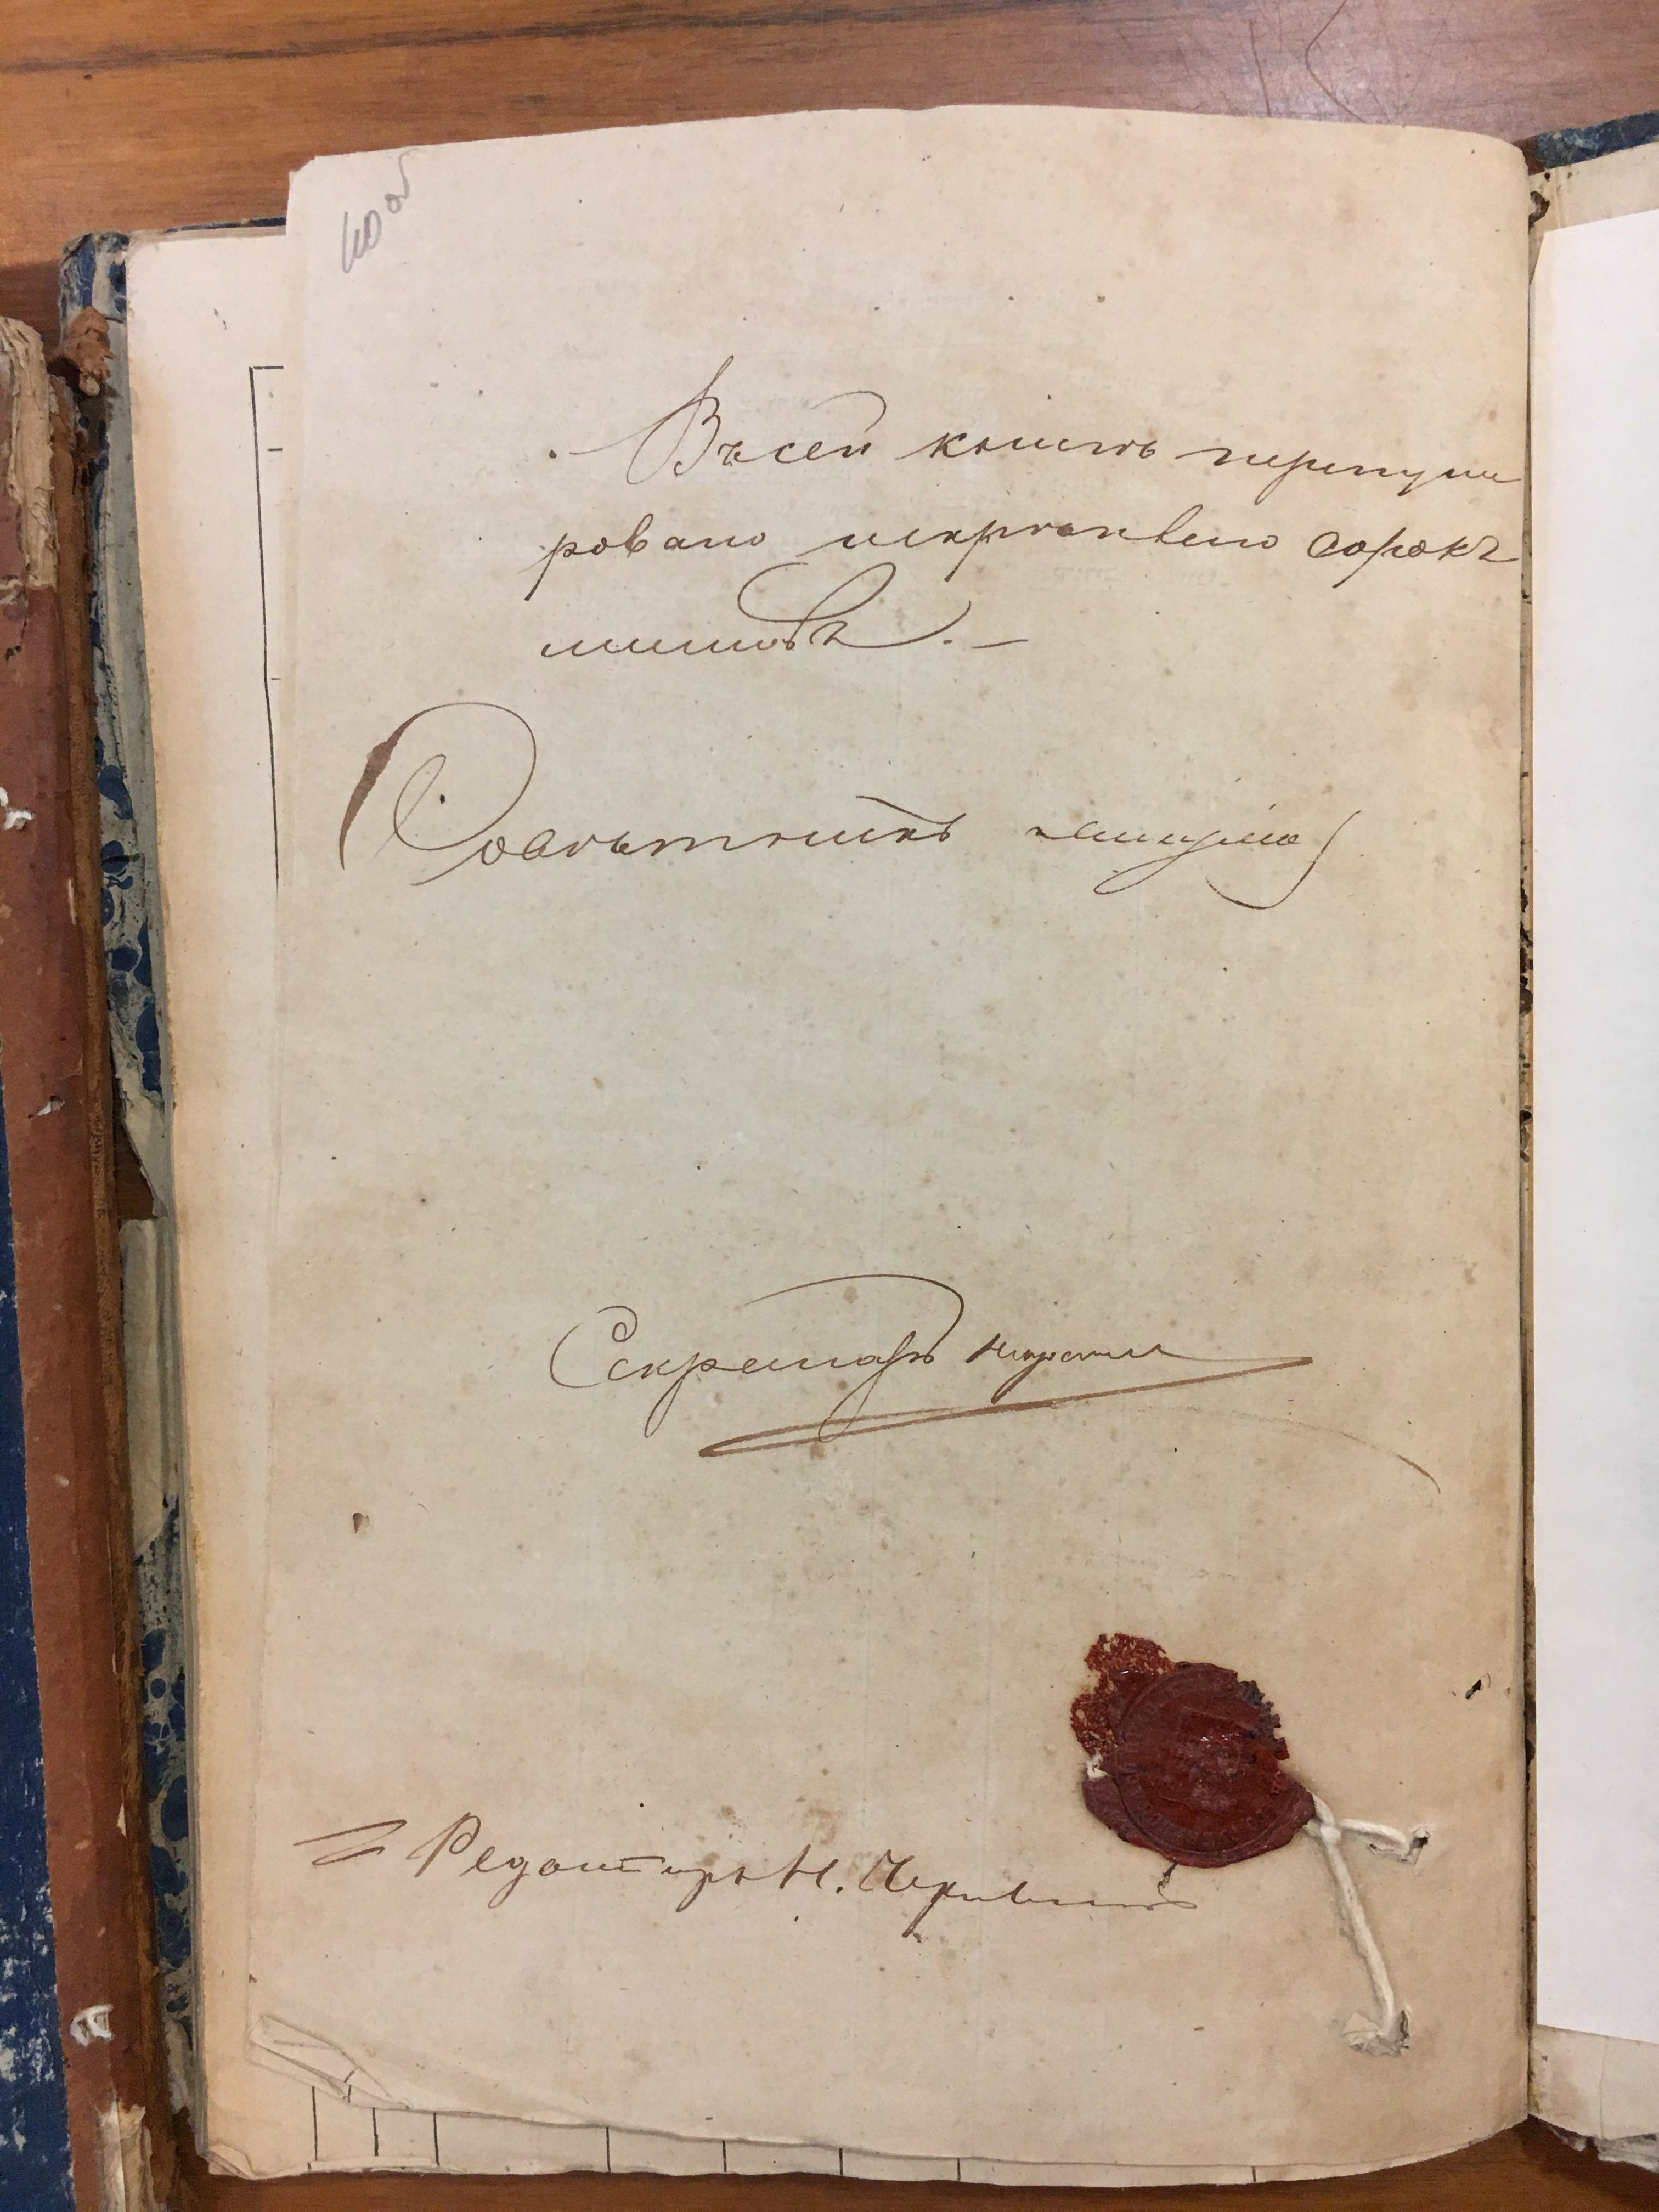 40 об
Въ сей книгѣ перенуме
ровано и скрѣплено сорокъ
листовъ. —
Совѣтникъ
Секретарь
Редакторъ Н.